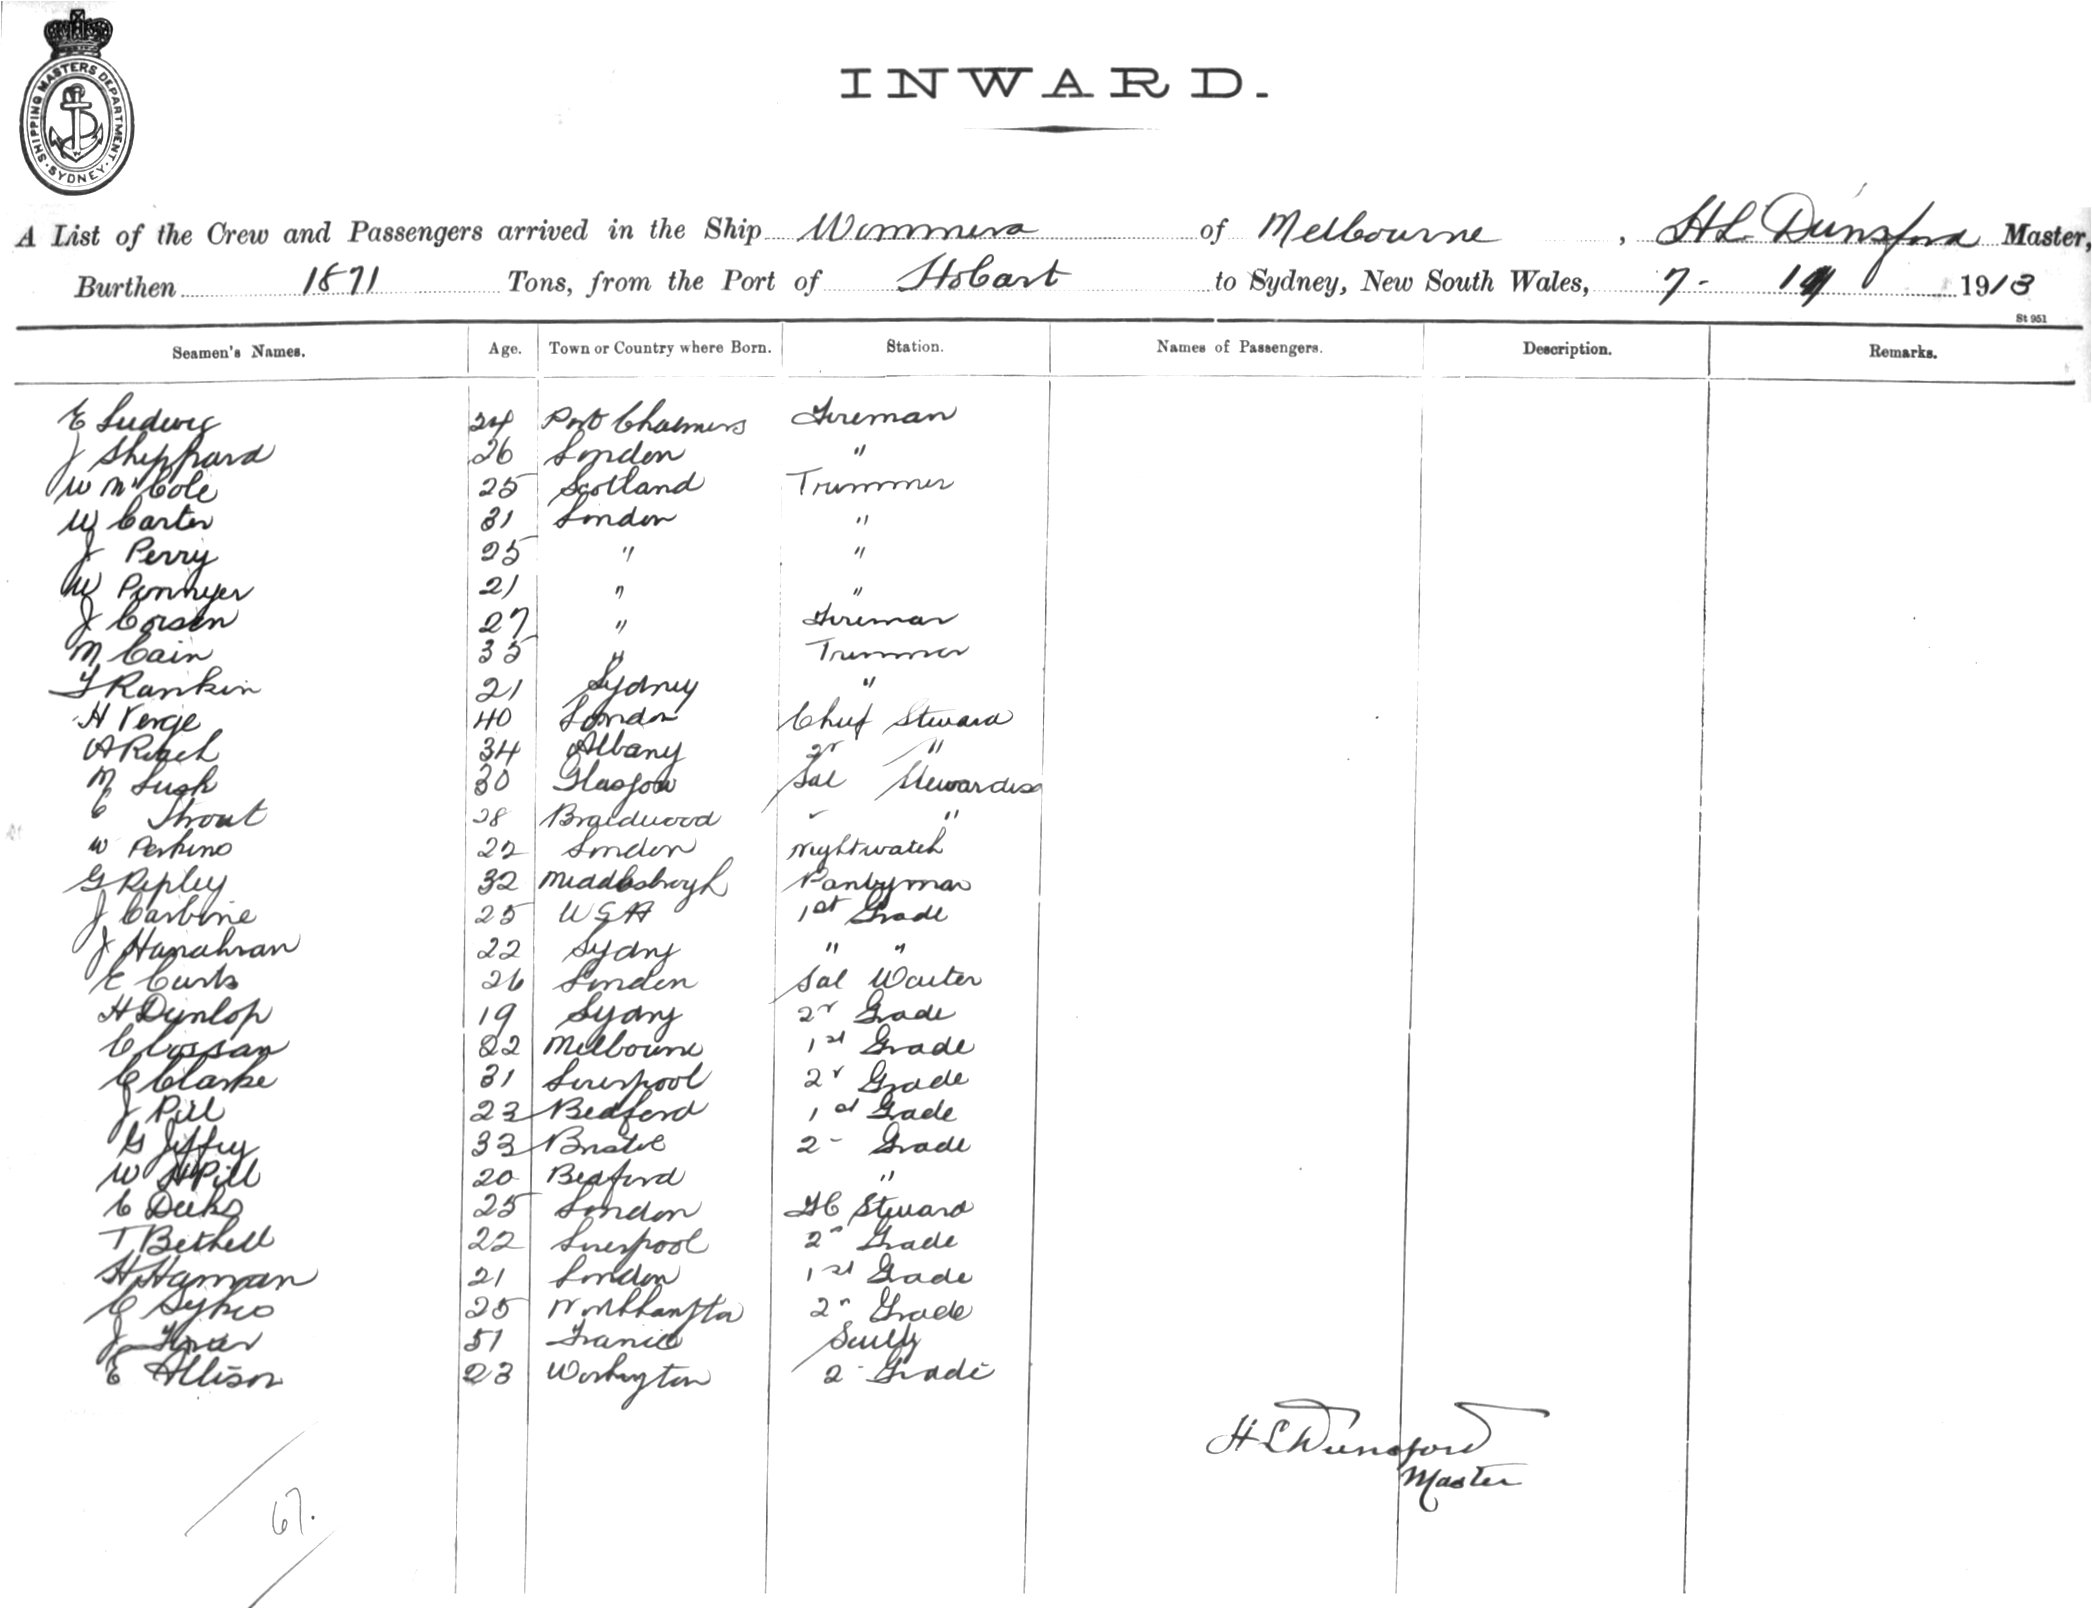 SHIPPING MASTERS DEPARTMENT. SYDNEY
INWARD.
A List of the Crew and Passengers arrived in the Ship Wimmera of Melbourne, H L Dunsford Master,
Burthen 1871 Tons, from the Port of Hobart to Sydney, New South Wales, 7- 1913
St 951
Seamen's Names. Age. Town or Country where Born. Station. Names of Passengers. Description. Remarks.
E Ludwig 24 Port Chalmers Fireman
J Sheppard 26 London "
W McCole 25 Scotland Trimmer
W Carter 31 London "
J Perry 25 " "
W Pennyer 21 " "
J Corsen 27 " Fireman
M Cain 35 " Trimmer
F Rankin 21 Sydney "
H Verge 40 London Chief Steward
A Roach 34 Albany 2nd "
M Lush 30 Glasgow Sal Stewardess
E Trout 28 Braidwood " "
W Perkins 22 London Nightwatch
G Ripley 32 Middlesbrogh Pantryman
J Carbine 25 USA 1st Grade
J Hanahran 22 Sydny " "
E Curts 26 London Sal Waiter
H Dunlop 19 Sydny 2nd Grade
C Cossan 22 Melbourne 1st Grade
C Clarke 31 Liverpool 2nd Grade
J Pill 23 Bedford 1st Grade
G Jeffrey 33 Bristol 2- Grade
W H Pill 20 Bedford "
C Deeks 25 London FC Steward
T Bethell 22 Liverpool 2n Grade
H Hayman 21 London 1st Grade
C Sykes 25 Northhampton 2n Grade
J 51 France Scully
E Allison 23 Workington 2- Grade
H L Dunsford
Master
67.